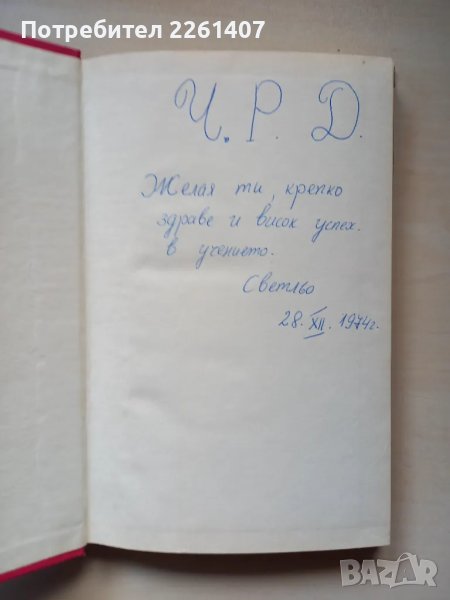 Потребител 2261407
Ч. Р. Д.
Желая ти, крепко
здраве и висок успех.
в учението.
Светльо
28. XII. 1974г.
BAZAR